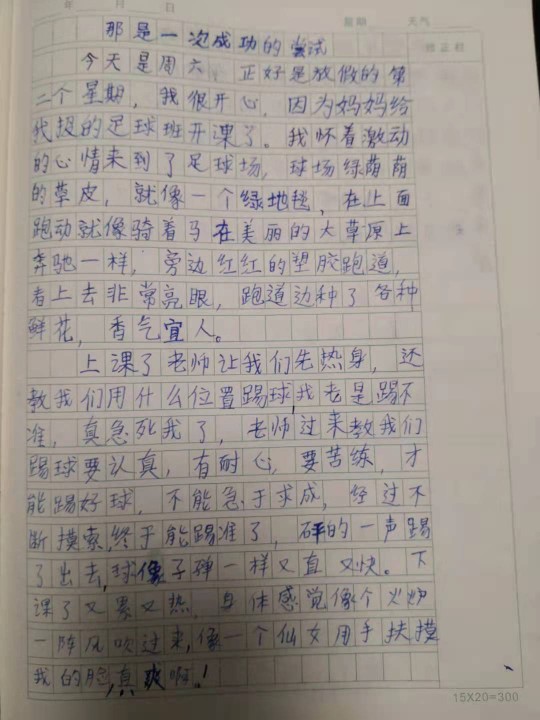 年 月 日 星期 天气
那是一次成功的尝试
修正栏
今天是周六，正好是放假的第
二个星期，我很开心，因为妈妈给
我投的足球班开课了。我怀着激动
的心情来到了足球场，球场绿荫荫
的草皮，就像一个绿地毯，在上面
跑动就像骑着马在美丽的大草原上
奔驰一样，旁边红红的塑胶跑道，
看上去非常亮眼，跑道边种了各种
鲜花，香气宜人。
上课了老师让我们先热身，还
教我们用什么位置踢球，我老是踢不
准，真急死我了，老师过来教我们
踢球要认真，有耐心，要苦练，才
能踢好球，不能急于求成，经过不
断摸索，终于能踢准了，砰的一声踢
了出去，球像子弹一样又直又快。下
课了又累又热，身体感觉像个火炉
一阵风吹过来，像一个仙女用手扶摸
我的脸，真爽啊！
15X20=300